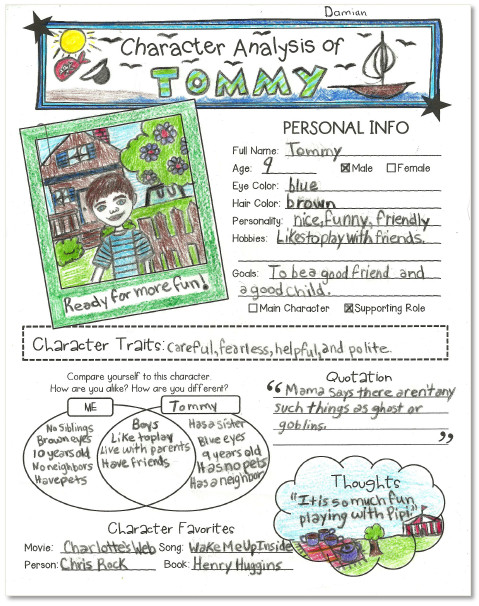 Damian
Character Analysis of
TOMMY
PERSONAL INFO
Full Name: Tommy
Age: 9 Male Female
Eye Color: blue
Hair Color: brown
Personality: nice, funny, friendly
Hobbies: Likes to play with friends.
Goals: To be a good friend and
a good child.
Main Character Supporting Role
Ready for more fun!
Character Traits: careful, fearless, helpful, and polite.
Compare yourself to this character.
How are you alike? How are you different?
ME
Tommy
No siblings
Brown eyes
10 years old
No neighbors
Have pets
Boys
Like to play
Live with parents
Have friends
Has a sister
Blue eyes
9 years old
Has no pets
Has a neighbor
Quotation
“Mama says there aren't any
such things as ghost or
goblins.”
Thoughts
"It is so much fun
playing with Pipi."
Character Favorites
Movie: Charlotte's Web Song: Wake Me Up Inside
Person: Chris Rock Book: Henry Huggins